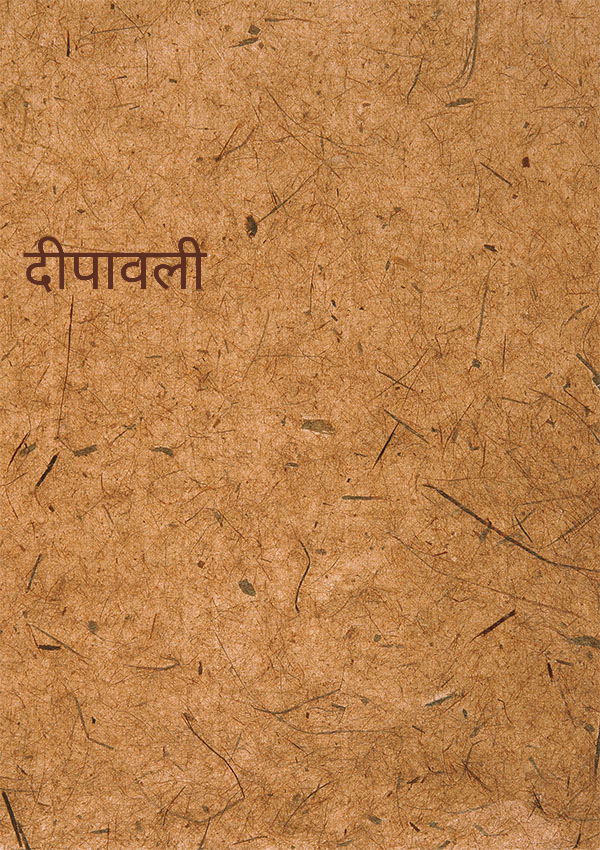 दीपावली